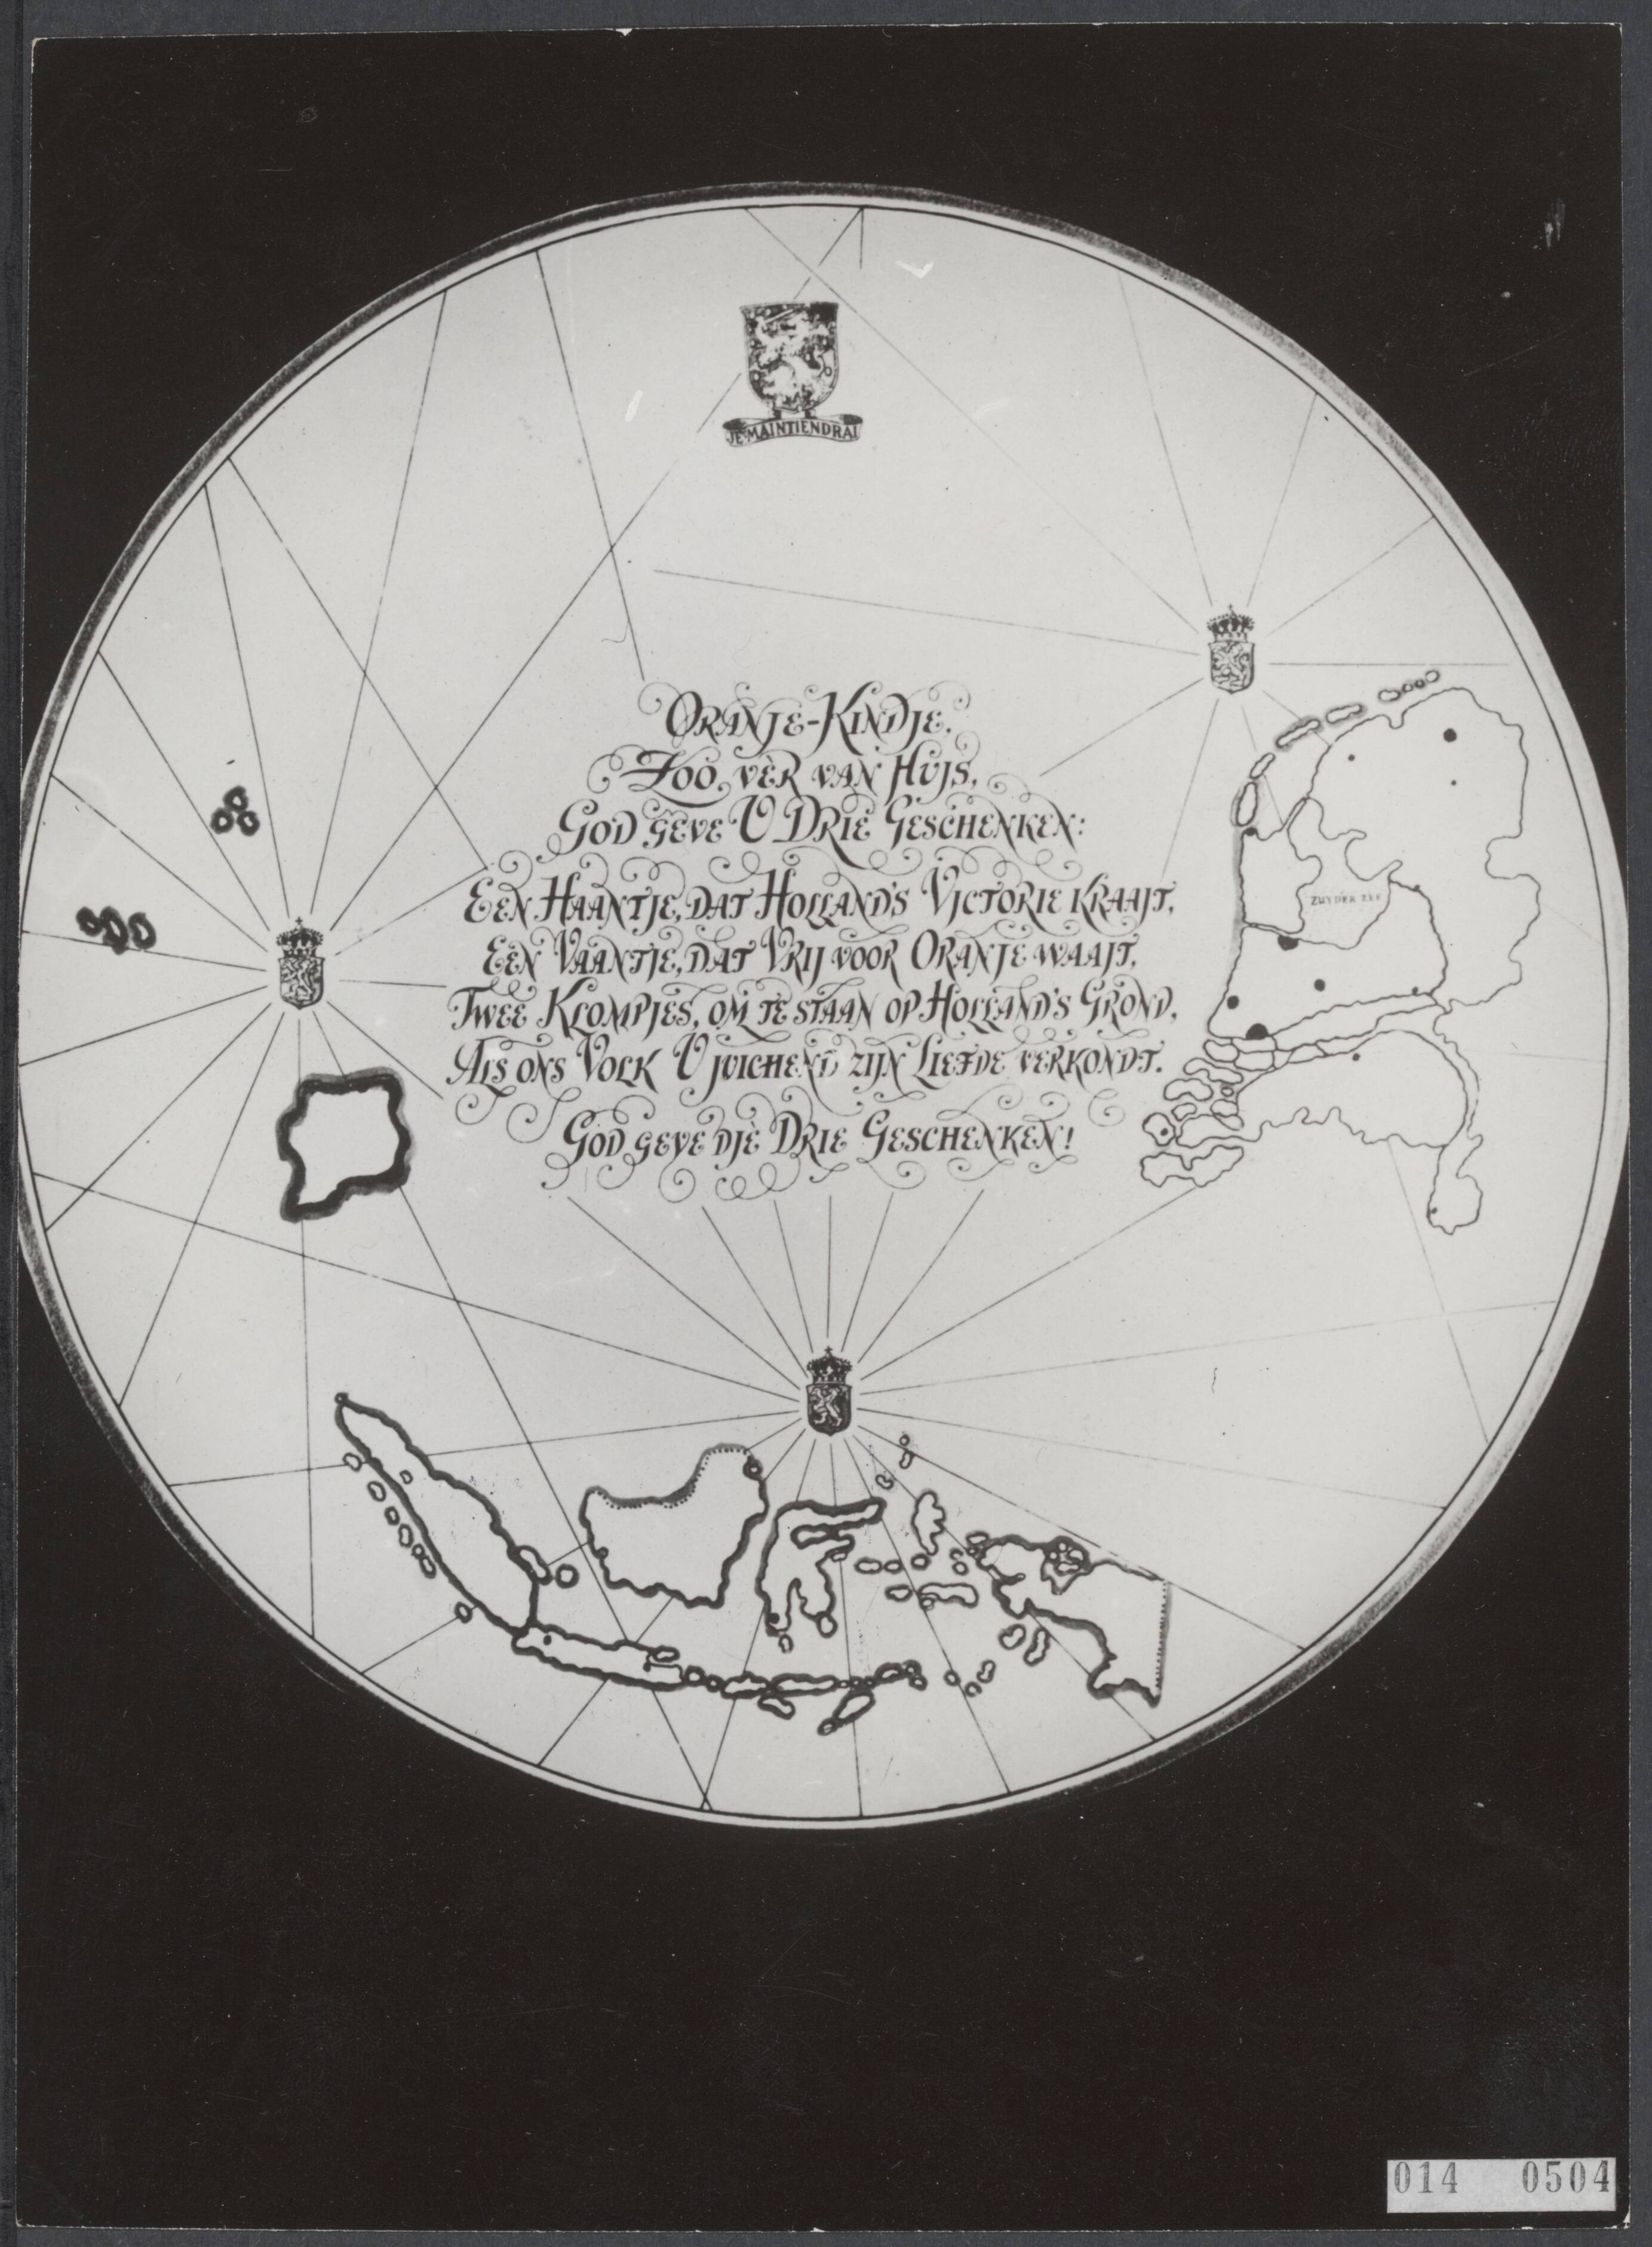 JE MAINTIENDRAI
ORANJE-KINDJE,
ZOO VÈR VAN HUJS,
GOD GEVE U DRIE GESCHENKEN:
EEN HAANTJE, DAT HOLLAND'S VJCTORIE KRAAJT,
EEN VAANTJE, DAT VRIJ VOOR ORANJE WAAJT,
TWEE KLOMPJES, OM TE STAAN OP HOLLAND'S GROND,
ALS ONS VOLK U JUICHEND ZIJN LIEFDE VERKONDT.
GOD GEVE DJÈ DRIE GESCHENKEN!
ZUYDER ZEE
014 0504